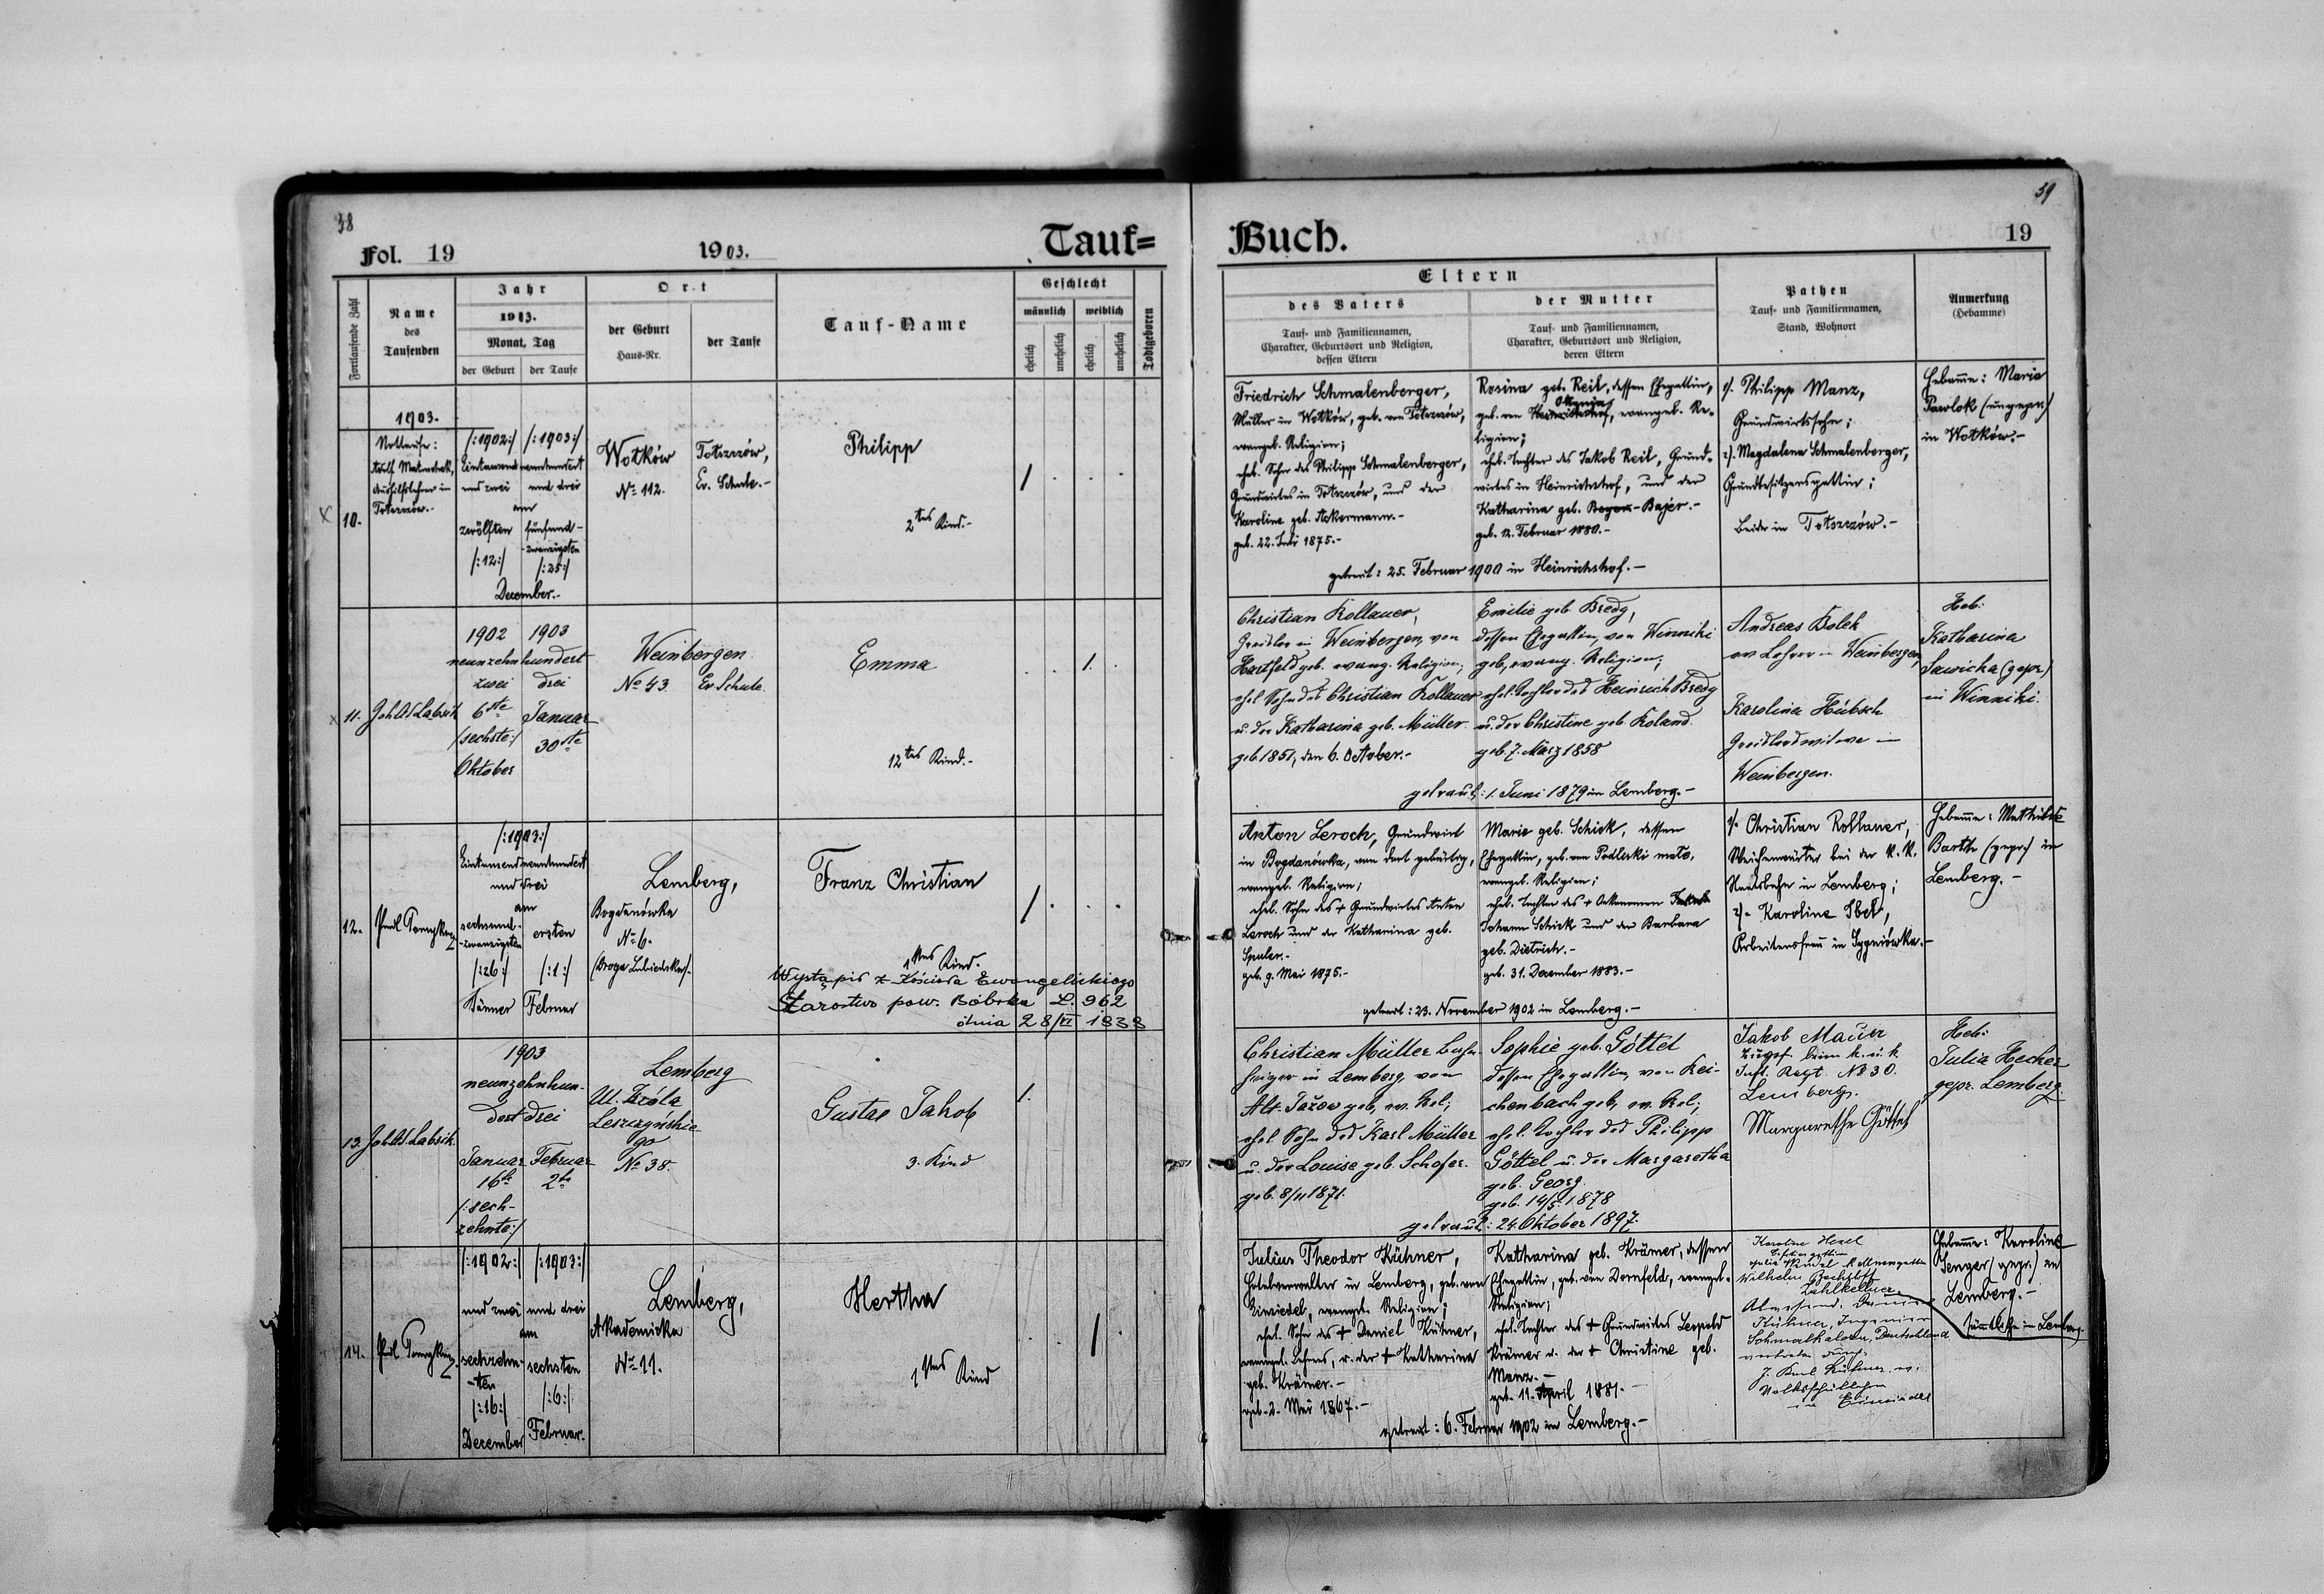 38
Fol. 19
1903.
Tauf=
Fortlaufende Zahl
Name
des
Taufenden
Jahr
1903.
Monat, Tag
der Geburt
der Taufe
Ort
der Geburt
Haus-Nr.
der Taufe
Tauf-Name
Geschlecht
männlich
weiblich
ehelich
unehelich
ehelich
unehelich
Todtgeboren
1903.
10.
Nottaufe:
Aushilfslehrer in
Totszczów.-
/:1902:/ /:1903:/
Eintausend neunhundert
und zwei und drei
am
zwölften fünfund-
-zwanzigsten
/:12:/ /:25:/
December.-
Wołków
No 112.
Totszczów,
Ev. Schule.-
Philipp
2tes Kind.-
1
11.
Joh Ad Labsik
1902 1903
neunzehnhundert
zwei drei
6ste Januar
/sechste:/ 30ste
Oktober
Weinbergen
No 43. Ev. Schule.
Emma
12tes Kind.-
1.
12.
/:1903:/
Eintausend neunhundert
und drei
am
sechsund-
-zwanzigsten ersten
/:26:/ /:1:/
Jänner Februar
Lemberg,
Bogdanówka
No 6.
(Droga Lubieńska).
Franz Christian
1tes Kind.
Wystąpił z Kościoła Ewangelickiego
Starostwo pow. Bóbrka L. 962
dnia 28/VI 1939
1
13.
Joh Ad Labsik.
1903
neunzehnhun-
dert drei
Januar Februar
16te 2te
/:sech-
zehnte:/
Lemberg
Ul. Króla
Leszczyńskie-
go
No 38.
Gustav Jakob
3. Kind
1.
14.
/:1902:/ /:1903:/
und zwei und drei
am
sechzehn- sechsten
-ten
/:16:/ /:6:/
December Februar.
Lemberg,
Akademicka
No 11.
Hertha
1tes Kind
1
39
Buch.
19
Eltern
des Vaters
Tauf- und Familiennamen,
Charakter, Geburtsort und Religion,
dessen Eltern
der Mutter
Tauf- und Familiennamen,
Charakter, Geburtsort und Religion,
deren Eltern
Pathen
Tauf- und Familiennamen,
Stand, Wohnort
Anmerkung
(Hebamme)
Friedrich Schmalenberger,
Müller in Wołków, geb. von Totszczów,
evangel. Religion;
ehel. Sohn des Philipp Schmalenberger,
Grundwirtes in Totszczów, und der
Karoline geb. Ackermann.-
geb. 22. Juli 1875.-
Rosina geb. Reil, dessen Ehegattin,
geb. von evangel. Re-
ligion;
ehel. Tochter des Jakob Reil, Grund-
wirtes in Heinrichshof, und der
Katharina geb. Bajer.-
geb. 12. Februar 1880.-
getraut: 25. Februar 1900 in Heinrichshof.-
1). Philipp Manz,
Grundwirtssohn;
2). Magdalena Schmalenberger,
Grundbesitzersgattin;
beide in Totszczów.-
Hebamme: Maria
Pawlok (ungepr.)
in Wołków.-
Christian Kollauer,
Greisler in Weinbergen, von
Hartfeld geb. evang. Religion;
ehel. Sohn des Christian Kollauer
u. der Katharina geb. Müller.
geb. 1851, den 6. October.-
Emilie geb. Bredy,
dessen Ehegattin, von Winniki
geb., evang. Religion;
ehel. Tochter des Heinrich Bredy
u. der Christine geb. Roland.
geb. 7. März 1858
getraut: 1. Juni 1879 in Lemberg.-
Andreas Bolek
ev. Lehrer in Weinbergen,
Karolina Hübsch
Greislerswitwe in
Weinbergen.
Heb:
Katharina
Sawicka (gepr.)
in Winniki.
Anton Leroch, Grundwirt
in Bogdanówka, von dort gebürtig,
evangel. Religion;
ehel. Sohn des + Grundwirtes Anton
Leroch und der Katharina geb.
Spuler.-
geb. 9. Mai 1875.-
Marie geb. Schick, dessen
Ehegattin, geb. von Podleski małe,
evangel. Religion;
ehel. Tochter des + Oekonomen
Johann Schick und der Barbara
geb. Dietrich.-
geb. 31. December 1883.-
getraut: 23. November 1902 in Lemberg.-
1). Christian Kollauer,
Weichenwärter bei der k. k.
Staatsbahn in Lemberg;
2). Karoline Ibel,
Arbeitersfrau in Sygniówka.-
Hebamme: Mathilde
Barth (gepr.) in
Lemberg.-
Christian Müller
in Lemberg, von
geb., ev. Rel;
ehel. Sohn des Karl Müller
u. der Louise geb. Schofer.
geb. 8/11 1871.
Sophie geb. Göttel
dessen Ehegattin, von Rei-
chenbach geb, ev. Rel;
ehel. Tochter des Philipp
Göttel u. der Margaretha
geb. Georg.
geb. 14/5 1878
getraut: 24. Oktober 1897.
Jakob Mauer
Zugsf. beim k. u. k.
Inft. Regt. No 30.
Lemberg.
Margarethe Göttel
Heb:
Julia Hecker
gepr. Lemberg.
Julius Theodor Kühner,
Hotelverwalter in Lemberg, geb. von
Einsiedel, evangel. Religion;
ehel. Sohn des + Daniel Kühner,
evangel. Lehrers, u. der + Katharina
geb. Krämer.-
geb. 2. Mai 1867.-
Katharina geb. Krämer, dessen
Ehegattin, geb. von Dornfeld, evangel.
Religion;
ehel. Tochter des + Grundwirtes Leopold
Krämer u. der + Christine geb.
Manz.-
geb. 11. April 1881.-
getraut: 6. Februar 1902 in Lemberg.-
Karoline Hexel
Wilhelm Bechtloff
Zahlkellner
Kühner, Ingenieur
Schmalkalden, Deutschland
vertreten durch:
J. Karl Kühner, ev.
Volksschullehrer
in Einsiedel
Hebamme: Karoline
Senger (gepr.) in
Lemberg.-
sämtliche in Lemberg.